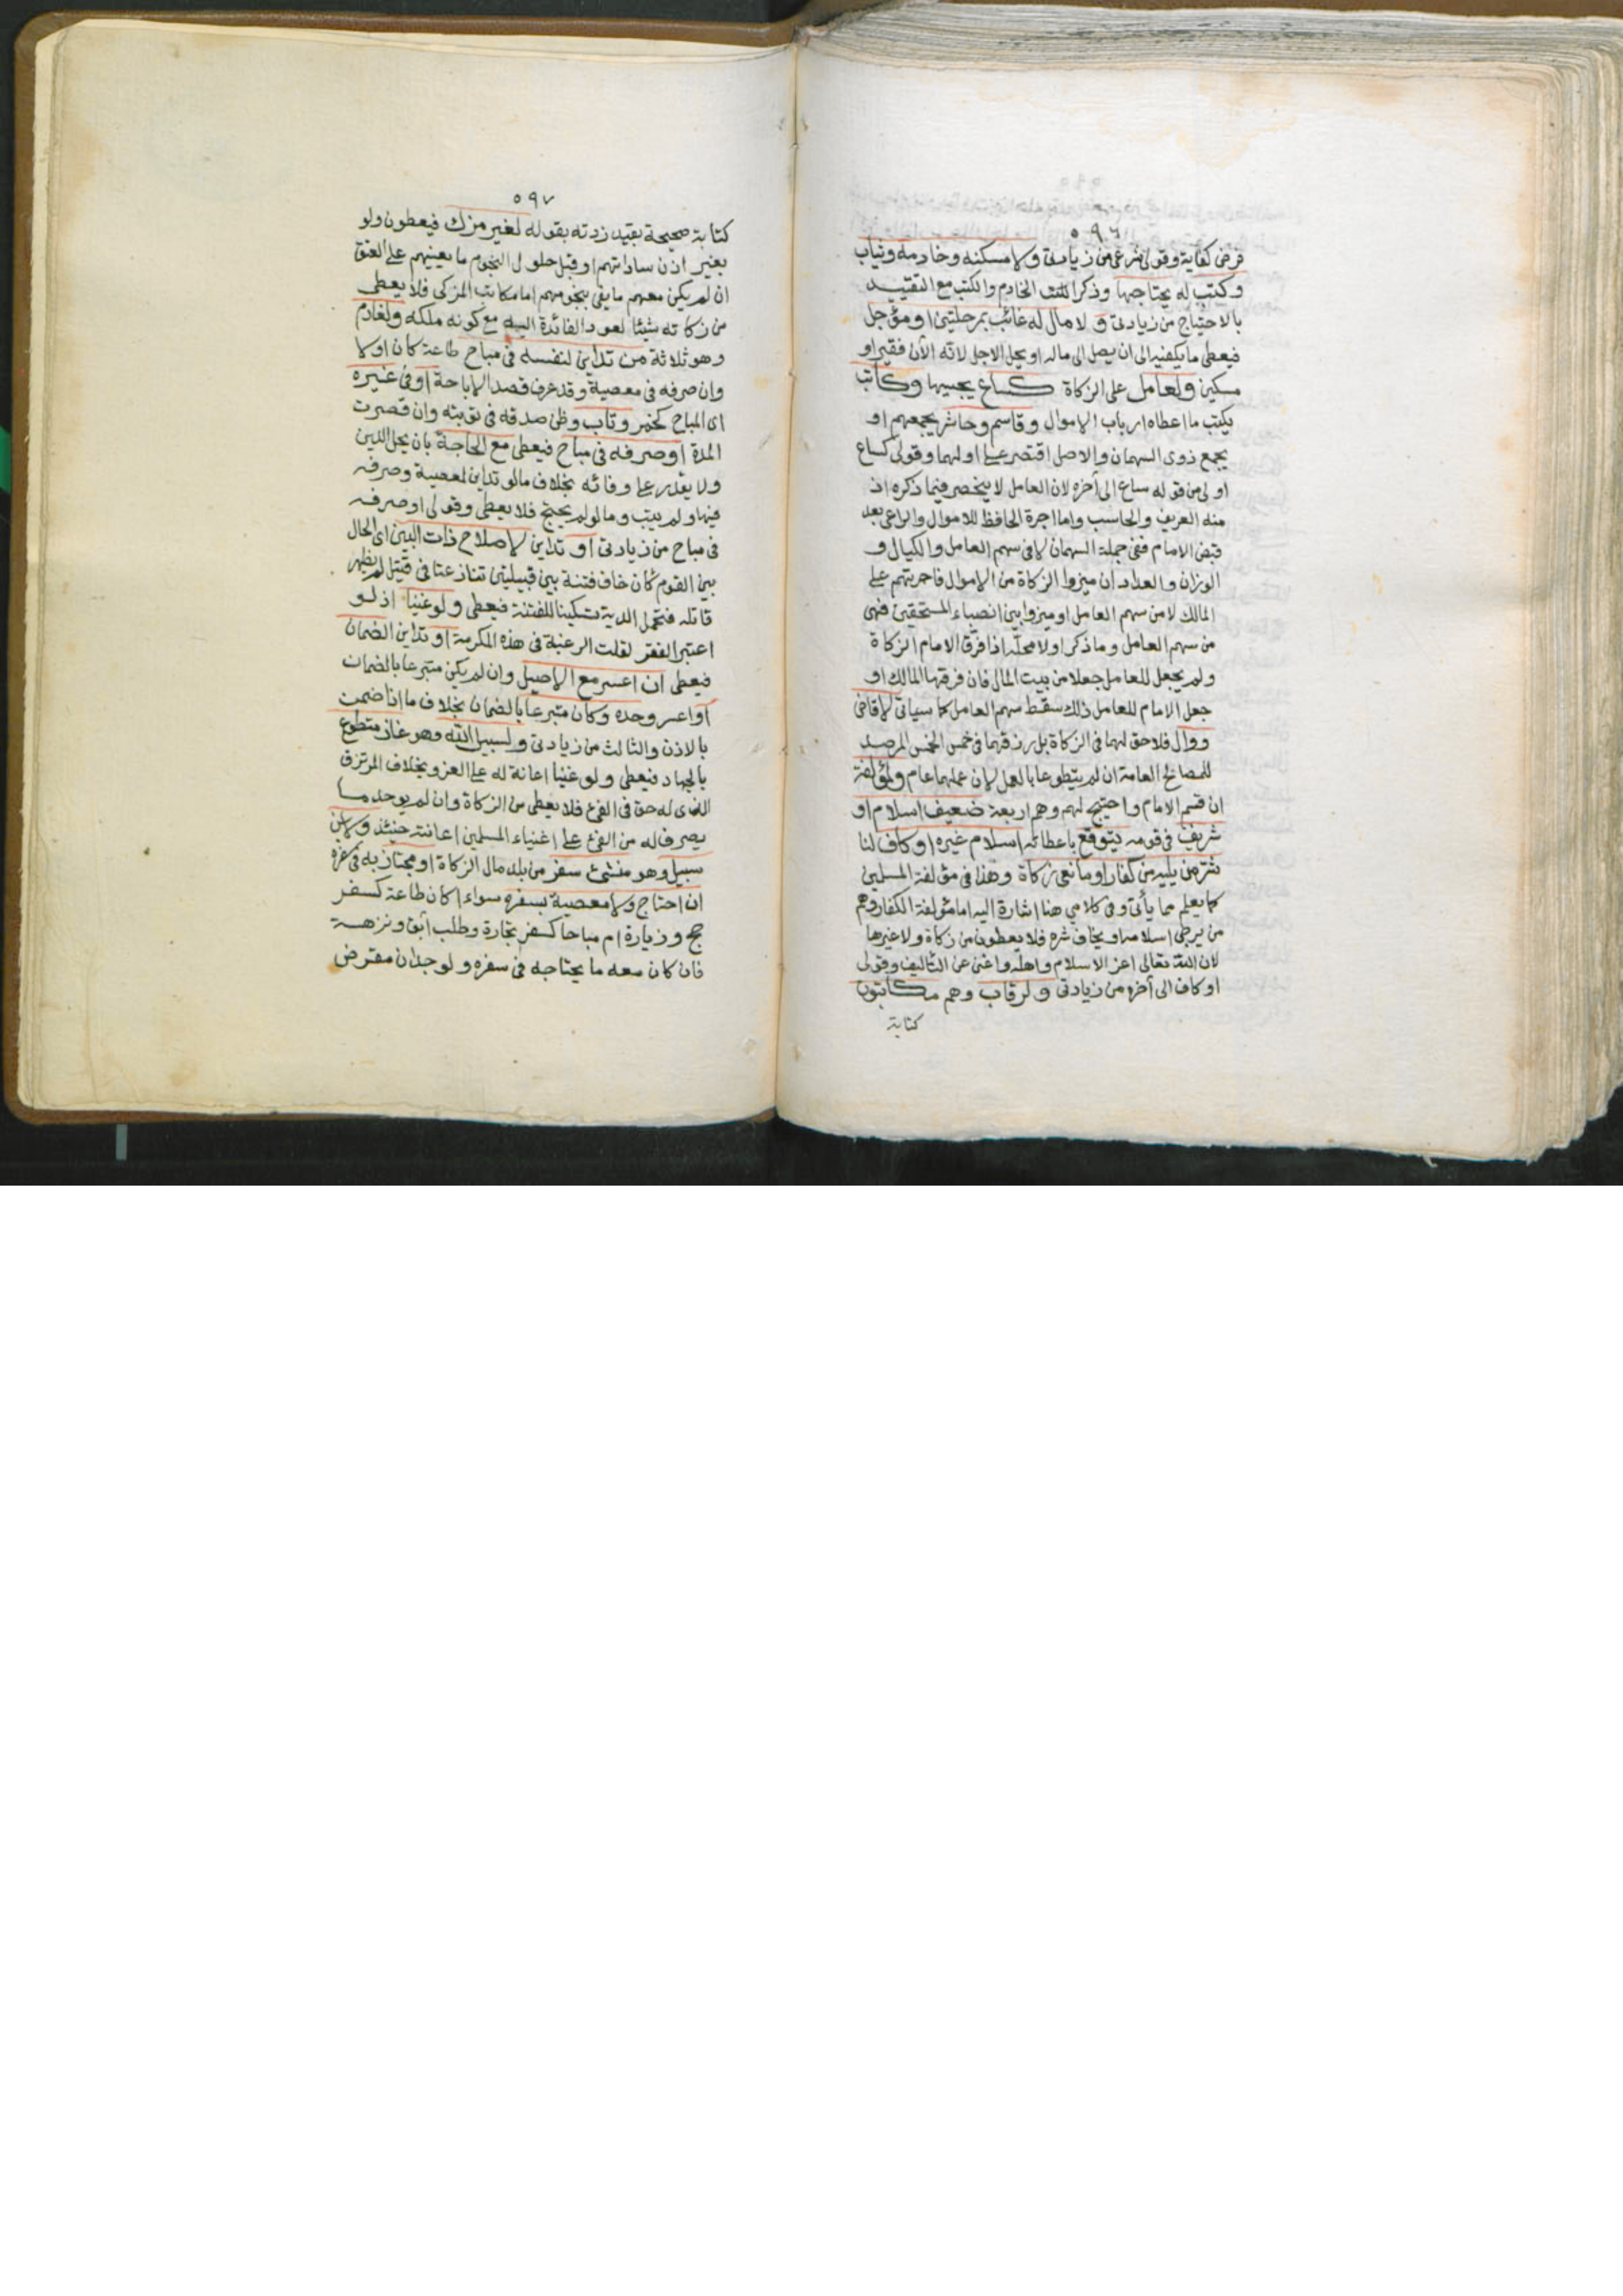 ٥٩٦
فرض كفاية وقولى شرعى من زيادتى ولا مسكنه وخادمه وثياب
وكتب له يحتاجها وذكر الخادم والكتب مع التقييد
بالاحتياج من زيادتى و لا مال له غائب بمرحلتين او مؤجل
فيعطى ما يكفيه الى ان يصل الى ماله او يحل الاجل لانه الآن فقير او
مسكين ولعامل على الزكاة كساع يجبيها وكاتب
يكتب ما اعطاه ارباب الاموال وقاسم وحاشر يجمعهم او
يجمع ذوى السهمان والاصل اقتصر على اولهما وقولى كساع
اولى من قوله ساع الى آخره لان العامل لا ينحصر فيما ذكره اذ
منه العريف والحاسب واما اجرة الحافظ للاموال والراعى بعد
قبض الامام ففى جملة السهمان لا فى سهم العامل والكيال و
الوزان والعداد ان ميزوا الزكاة من الاموال فاجرتهم على
المالك لا من سهم العامل او ميزوا بين انصباء المستحقين فهى
من سهم العامل وما ذكر اولا محله اذا فرق الامام الزكاة
ولم يجعل للعامل جعلا من بيت المال فان فرقها المالك او
جعل الامام للعامل ذلك سقط سهم العامل كما سياتى لا قاض
ووال فلا حق لهما فى الزكاة بل رزقهما فى خمس الخمس المرصد
للمصالح العامة ان لم يتطوعا بالعمل لان عملهما عام ولمؤلفة
ان قسم الامام واحتيج لهم وهم اربعة ضعيف اسلام او
شريف فى قومه يتوقع باعطائه اسلام غيره او كاف لنا
شر من يليه من كفار او مانعى زكاة وهذا فى مؤلفة المسلمين
كما يعلم مما يأتى وفى كلامى هنا اشارة اليه اما مؤلفة الكفار وهم
من يرجى اسلامه او يخاف شره فلا يعطون من زكاة ولا غيرها
لان الله تعالى اعز الاسلام واهله واغنى عن التأليف وقولى
او كاف الى آخره من زيادتى ولرقاب وهم مكاتبون
كتابة
٥٩٧
كتابة صحيحة بقيد زدته بقوله لغير مزك فيعطون ولو
بغير اذن ساداتهم او قبل حلول النجوم ما يعينهم على العتق
ان لم يكن معهم ما يفى بنجومهم اما مكاتب المزكى فلا يعطى
من زكاته شيئا لعود الفائدة اليه مع كونه ملكه ولغارم
وهو ثلاثة من تداين لنفسه فى مباح طاعة كان اولا
وان صرفه فى معصية وقد عرف قصد الاباحة او فى غيره
اى المباح كخمر وتاب وظن صدقه فى توبته وان قصرت
المدة او صرفه فى مباح فيعطى مع الحاجة بان يحل الدين
ولا يقدر على وفائه بخلاف ما لو تداين لمعصية وصرفه
فيها ولم يتب وما لو لم يحتج فلا يعطى وقولى او صرفه
فى مباح من زيادتى او تداين لاصلاح ذات البين اى الحال
بين القوم كان خاف فتنة بين قبيلتين تنازعتا فى قتيل لم يظهر
قاتله فتحمل الدية تسكينا للفتنة فيعطى ولو غنيا اذ لو
اعتبر الفقر لقلت الرغبة فى هذه المكرمة او تداين لضمان
فيعطى ان اعسر مع الاصيل وان لم يكن متبرعا بالضمان
او اعسر وحده وكان متبرعا بالضمان بخلاف ما اذا ضمن
بالاذن والثالث من زيادتى ولسبيل الله وهو غاز متطوع
بالجهاد فيعطى ولو غنيا اعانة له على الغزو بخلاف المرتزق
الذى له حق فى الفئ فلا يعطى من الزكاة وان لم يوجد ما
يصرف له من الفئ على اغنياء المسلمين اعانته حينئذ ولابن
سبيل وهو منشئ سفر من بلد مال الزكاة او مجتاز به فى سفره
ان احتاج ولا معصية بسفره سواء اكان طاعة كسفر
حج وزيارة ام مباحا كسفر تجارة وطلب آبق ونزهة
فان كان معه ما يحتاجه فى سفره ولو وجدان مقترض